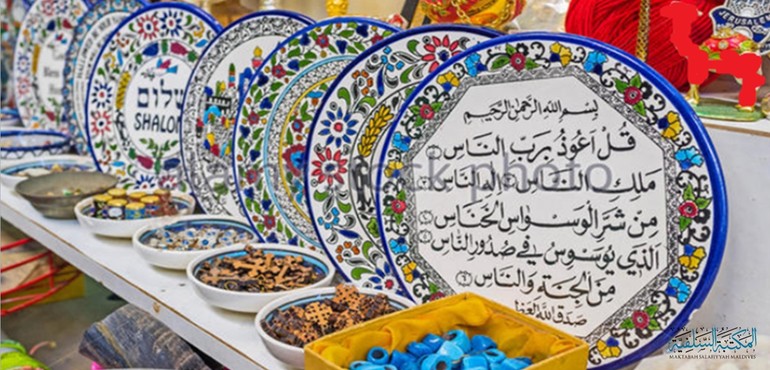 بِسْمِ اللهِ الرَّحْمٰنِ الرَّحِيْمِ
قُلْ اَعُوْذُ بِرَبِّ النَّاسِ
مَلِكِ النَّاسِ اِلٰهِ النَّاسِ
مِنْ شَرِّ الْوَسْوَاسِ الْخَنَّاسِ
الَّذِي يُوَسْوِسُ فِي صُدُوْرِ النَّاسِ
مِنَ الْجِنَّةِ وَالنَّاسِ
صَدَقَ اللهُ الْعَظِيمُ
שלום
SHALOM
JERUSALEM
stock photo
المكتبة السلفية
MAKTABAH SALAFIYYAH MALDIVES